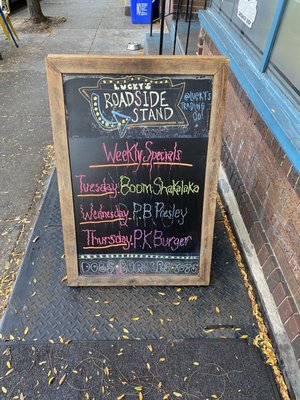 LUCKY'S
ROADSIDE
STAND
@LUCKY'S
TRADING
CO!
Weekly Specials
Tuesday: Boom Shakalaka
Wednesday: P.B. Presley
Thursday: P.K. Burger